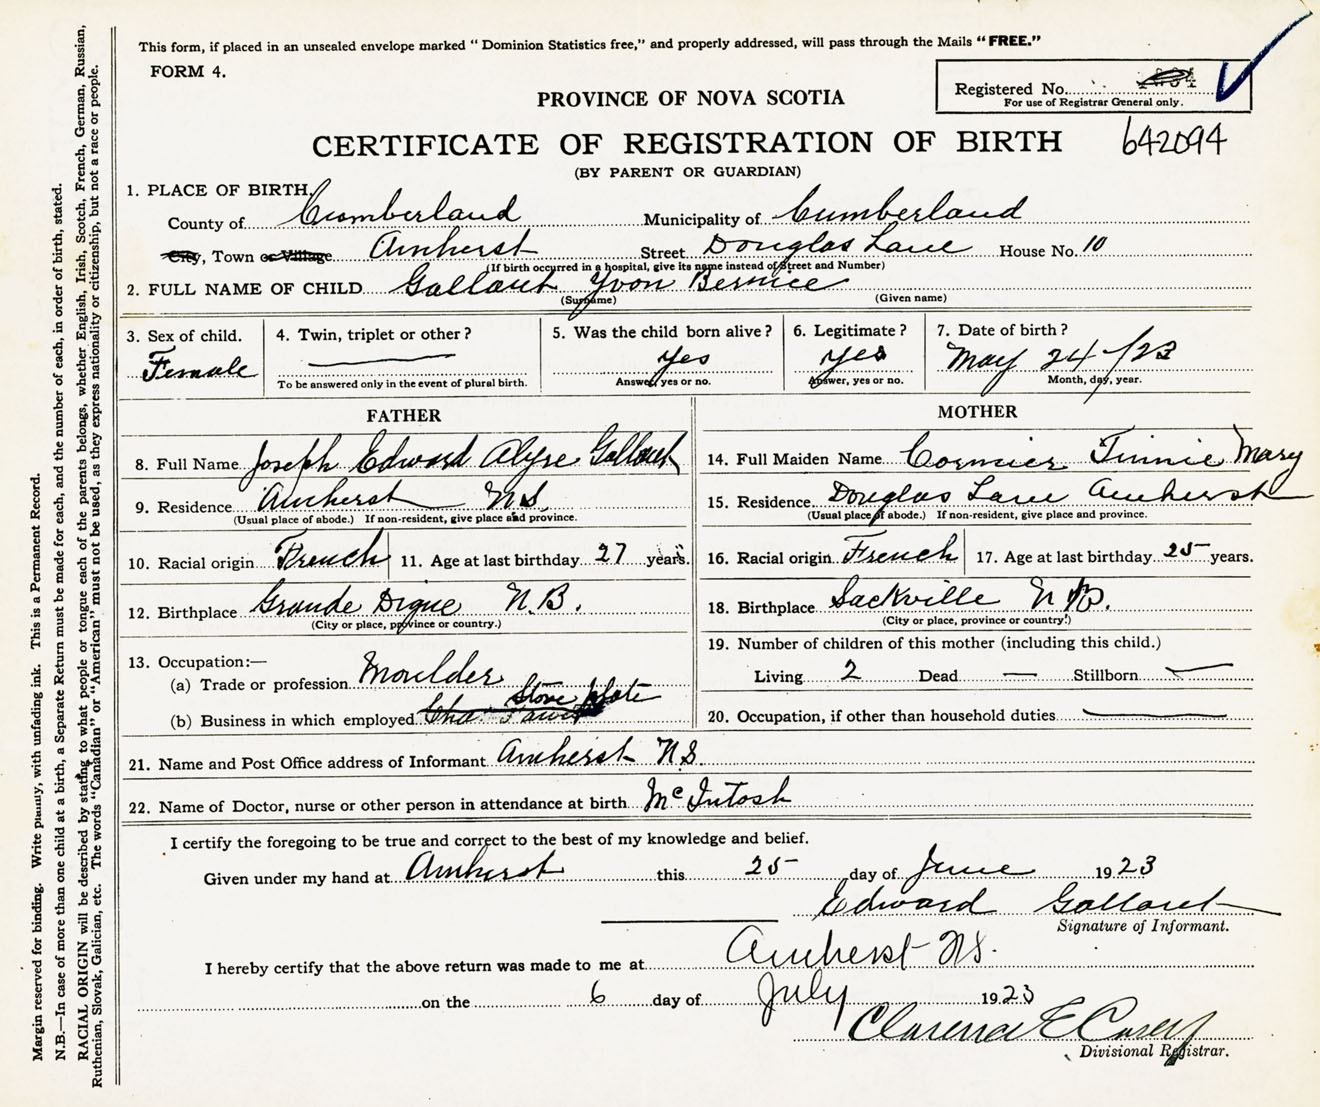 This form, if placed in an unsealed envelope marked "Dominion Statistics free," and properly addressed, will pass through the Mails "FREE."
FORM 4.
Registered No.
For use of Registrar General only.
PROVINCE OF NOVA SCOTIA
CERTIFICATE OF REGISTRATION OF BIRTH 642094
(BY PARENT OR GUARDIAN)
1. PLACE OF BIRTH.
County of Cumberland Municipality of Cumberland
City, Town or Village Amherst Street Douglas Lane House No. 10
(If birth occurred in a hospital, give its name instead of Street and Number)
2. FULL NAME OF CHILD Gallant Yvon Bernice
(Surname) (Given name)
3. Sex of child. 4. Twin, triplet or other? 5. Was the child born alive? 6. Legitimate? 7. Date of birth?
Female yes yes May 24/23
To be answered only in the event of plural birth. Answer, yes or no. Answer, yes or no. Month, day, year.
FATHER
8. Full Name Joseph Edward Alyre Gallant
9. Residence Amherst N.S.
(Usual place of abode.) If non-resident, give place and province.
10. Racial origin French 11. Age at last birthday 27 years.
12. Birthplace Grande Digue N.B.
(City or place, province or country.)
13. Occupation:—
(a) Trade or profession Moulder
Stove plate
(b) Business in which employed
MOTHER
14. Full Maiden Name Cormier Tinnie Mary
15. Residence Douglas Lane Amherst
(Usual place of abode.) If non-resident, give place and province.
16. Racial origin French 17. Age at last birthday 25 years.
18. Birthplace Sackville N.B.
(City or place, province or country.)
19. Number of children of this mother (including this child.)
Living 2 Dead — Stillborn —
20. Occupation, if other than household duties —
21. Name and Post Office address of Informant Amherst N.S.
22. Name of Doctor, nurse or other person in attendance at birth McIntosh
I certify the foregoing to be true and correct to the best of my knowledge and belief.
Given under my hand at Amherst this 25 day of June 1923
Edward Gallant
Signature of Informant.
I hereby certify that the above return was made to me at Amherst NS.
on the 6 day of July 1923
Clarence E Casey
Divisional Registrar.
Margin reserved for binding. Write plainly, with unfading ink. This is a Permanent Record.
N.B.—In case of more than one child at a birth, a Separate Return must be made for each, and the number of each, in order of birth, stated.
RACIAL ORIGIN will be described by stating to what people or tongue each of the parents belongs, whether English, Irish, Scotch, French, German, Russian,
Ruthenian, Slovak, Galician, etc. The words "Canadian" or "American" must not be used, as they express nationality or citizenship, but not a race or people.